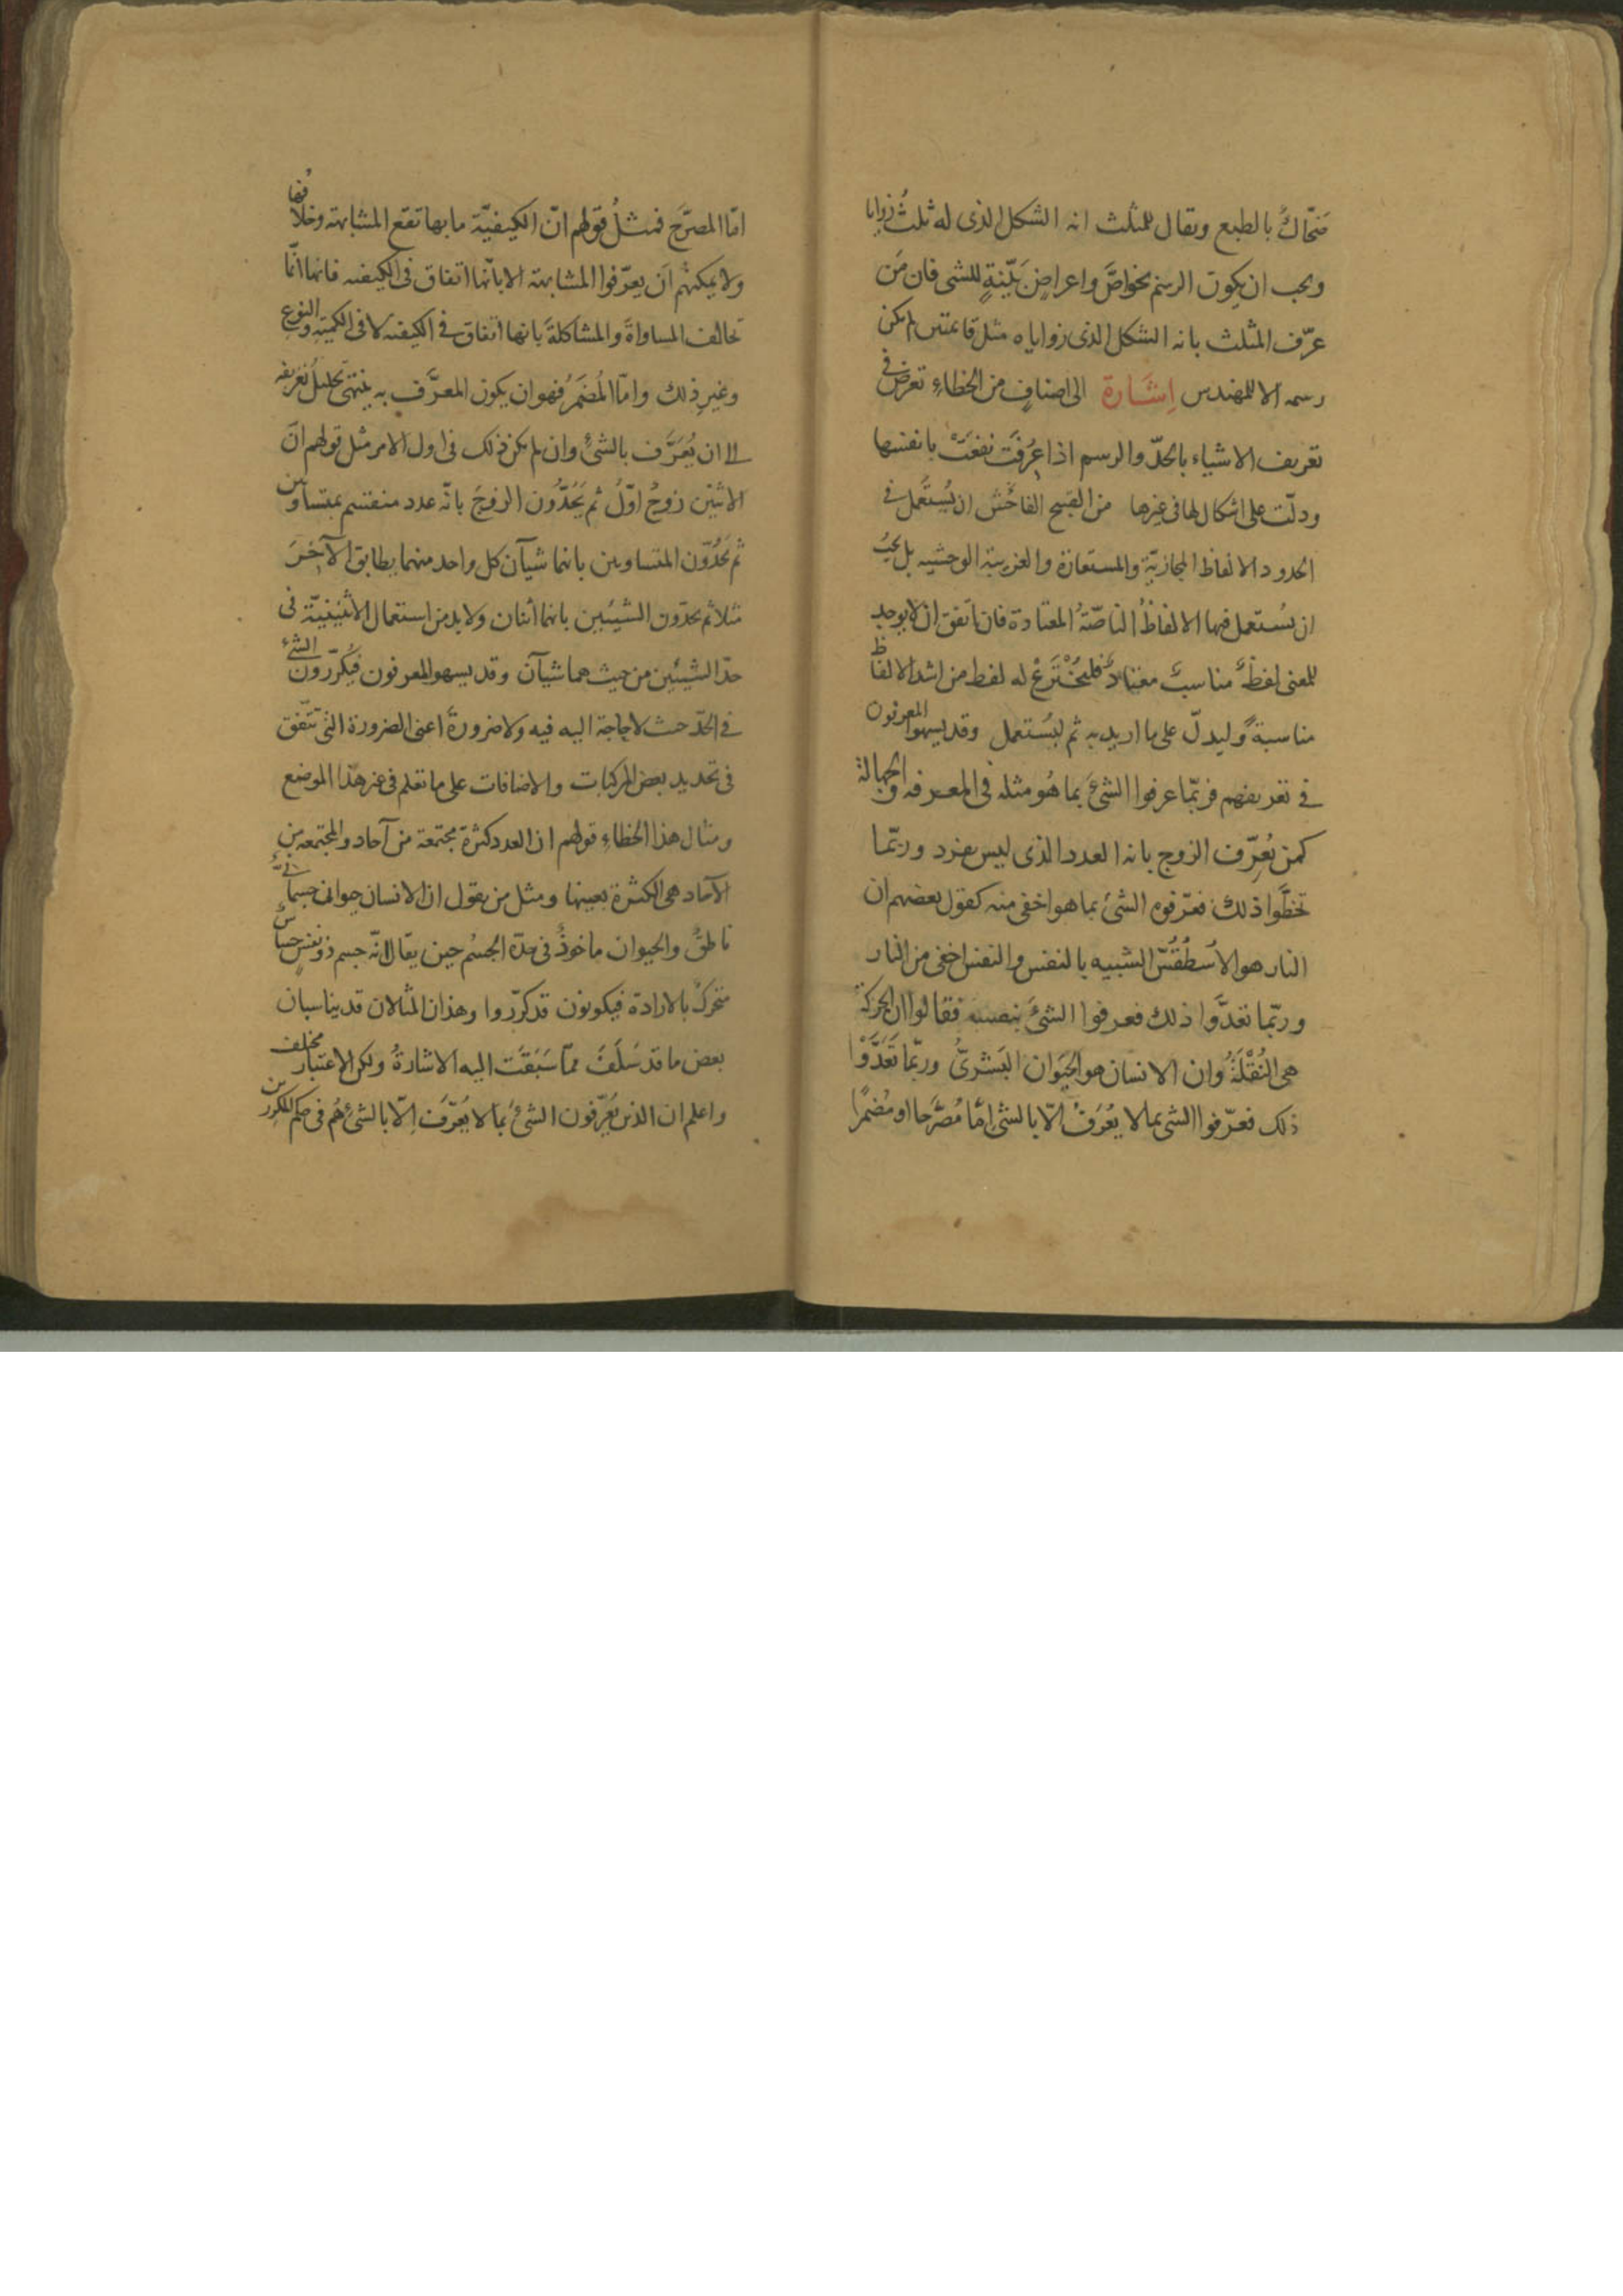 ضَحّاكٌ بالطبع ويقال للمثلث انه الشكل الذى له ثلثُ زوايا
ويجب ان يكون الرسم بخواصَّ واعراضٍ بَيّنةٍ للشى فان مَن
عرّف المثلث بانه الشكل الذى زواياه مثل قائمتين لم يكن
رسمه الا للمهندس اِشَارة الى اصنافٍ من الخطاءِ تعرض فى
تعريف الاشياء بالحدّ والرسم اذا عُرِفَت نفعَتْ بانفسها
ودلّت على اشكال لها فى غيرها من القبيح الفاحش ان يُستعمل فى
الحدود الالفاظ المجازيّة والمستعارة والغريبة الوحشيه بل يجبُ
ان يُستعمل فيها الالفاظُ الناصّةُ المعتادة فان اتفق ان لا يوجد
للمعنى لفظٌ مناسبٌ معتادٌ فليُخْتَرَعْ له لفظ من اشد الالفاظ
مناسبةً وليدلّ على ما اريد به ثم ليُستعمل وقد يسهوا المعرفون
فى تعريفهم فربّما عرفوا الشئَ بما هُو مثله فى المعرفه والجهالة
كمن يُعرِّف الزوج بانه العدد الذى ليس بفرد وربّما
تخطَّوا ذلك فعرّفوه الشئ بما هو اخفى منه كقول بعضهم ان
النار هو الاُسطُقُسّ الشبيه بالنفس والنفس اخفى من النار
وربّما تعدَّوا ذلك فعرفوا الشئَ بنفسه فقالوا ان الحركة
هى النُقْلَةُ وان الانسان هو الحيَوان البَشَرىُّ وربّما تَعَدَّوْا
ذلك فعرّفوا الشى بما لا يُعْرَفُ الّا بالشئ امّا مُصَرَّحا او مُضمرًا
امّا المصرّحَ فمثلُ قولهم انّ الكيفيّة ما بها تقع المشابهة وخلافُها
ولا يمكنهم اَن يعرّفوا المشابهة الا بانّها اتفاق فى الكيفيه فانها انّما
تخالف المساواةَ والمشاكلةَ بانها اتفاق فى الكيفيه لا فى الكمية والنوع
وغيرِ ذلك وامّا المُضمَرُ فهو ان يكون المعرَّف به ينتهى تحليلُ تعريفه
الى ان يُعَرَّف بالشئِ وان لم يكن ذلك فى اول الامر مثل قولهم انّ
الاثنين زوجٌ اوّلُ ثم يَحُدّون الزوجَ بانّه عدد منقسم بمتساويين
ثم يَحُدّون المتساويين بانهما شيآن كل واحد منهما يطابق الآخرَ
مثلا ثم يحدّون الشيئين بانهما اثنان ولا بد من استعمال الاثنينيّة فى
حدّ الشيئين من حيث هما شيآن وقد يسهو المعرفون فيُكرّرون الشئَ
فى الحدّ حيث لا حاجة اليه فيه ولا ضرورةَ اعنى الضرورة التى تتّفق
فى تحديد بعض المركبات والاضافات على ما تعلم فى غير هذا الموضع
ومثال هذا الخطاءِ قولهم ان العدد كثرة مجتمعة من آحاد والمجتمعة من
الآحاد هى الكثرة بعينها ومثل من يقول ان الانسان حيوان جسمانىٌّ
ناطقٌ والحيوان ماخوذٌ فى حدّه الجسمُ حين يقال انّه جسم ذو نفسٍ حسّاسٌ
متحركٌ بالارادة فيكونون قد كرّروا وهذان المثالان قد يناسبان
بعض ما قد سَلَفَ ممّا سَبَقَت اليه الاشارةُ ولكن الاعتبار مختلف
واعلم ان الذين يُعَرِّفون الشئَ بما لا يُعَرّف اِلّا بالشئ هُم فى حكم المكرّرين